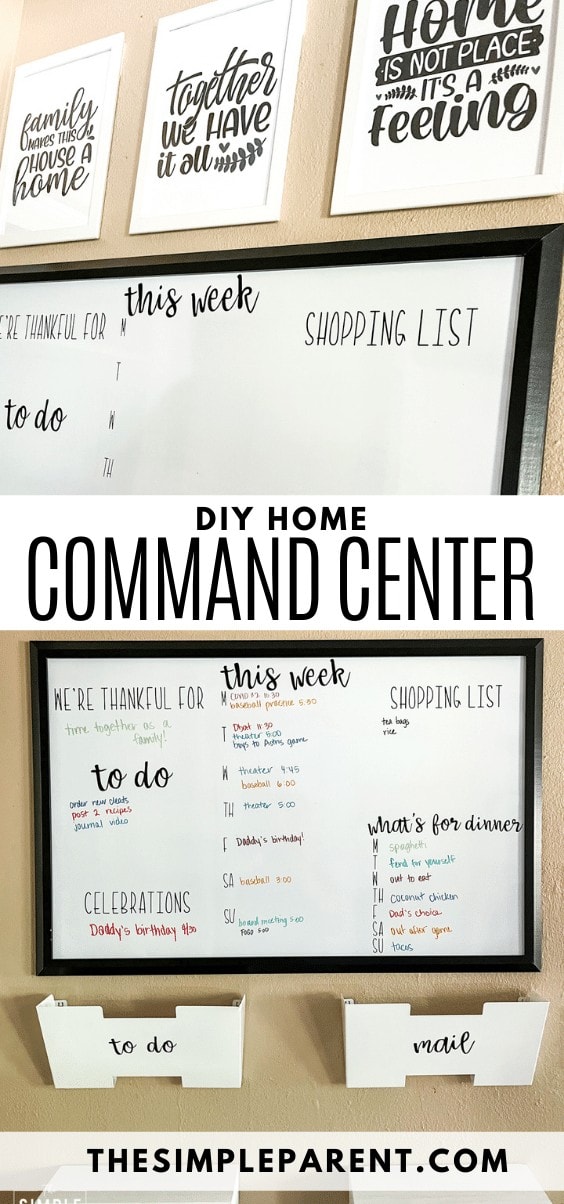 family
MAKES THIS
HOUSE A
home
together
WE HAVE
it all
Home
IS NOT PLACE
IT'S A
Feeling
this week
E'RE THANKFUL FOR
M
SHOPPING LIST
T
to do
W
TH
DIY HOME
COMMAND CENTER
this week
WE'RE THANKFUL FOR
time together as a
family!
to do
order new cleats
post 2 recipes
journal video
CELEBRATIONS
Daddy's birthday 4/30
M COVID #2 11:30
baseball practice 5:30
T
theater 5:00
boys to Astros game
W theater 4:45
baseball 6:00
TH theater 5:00
F Daddy's birthday!
SA baseball 3:00
SU board meeting 5:00
POGO 5:00
SHOPPING LIST
tea bags
rice
what's for dinner
M spaghetti
T fend for yourself
W out to eat
TH coconut chicken
F Dad's choice
SA out after game
SU tacos
to do
mail
THESIMPLEPARENT.COM
SIMPLE